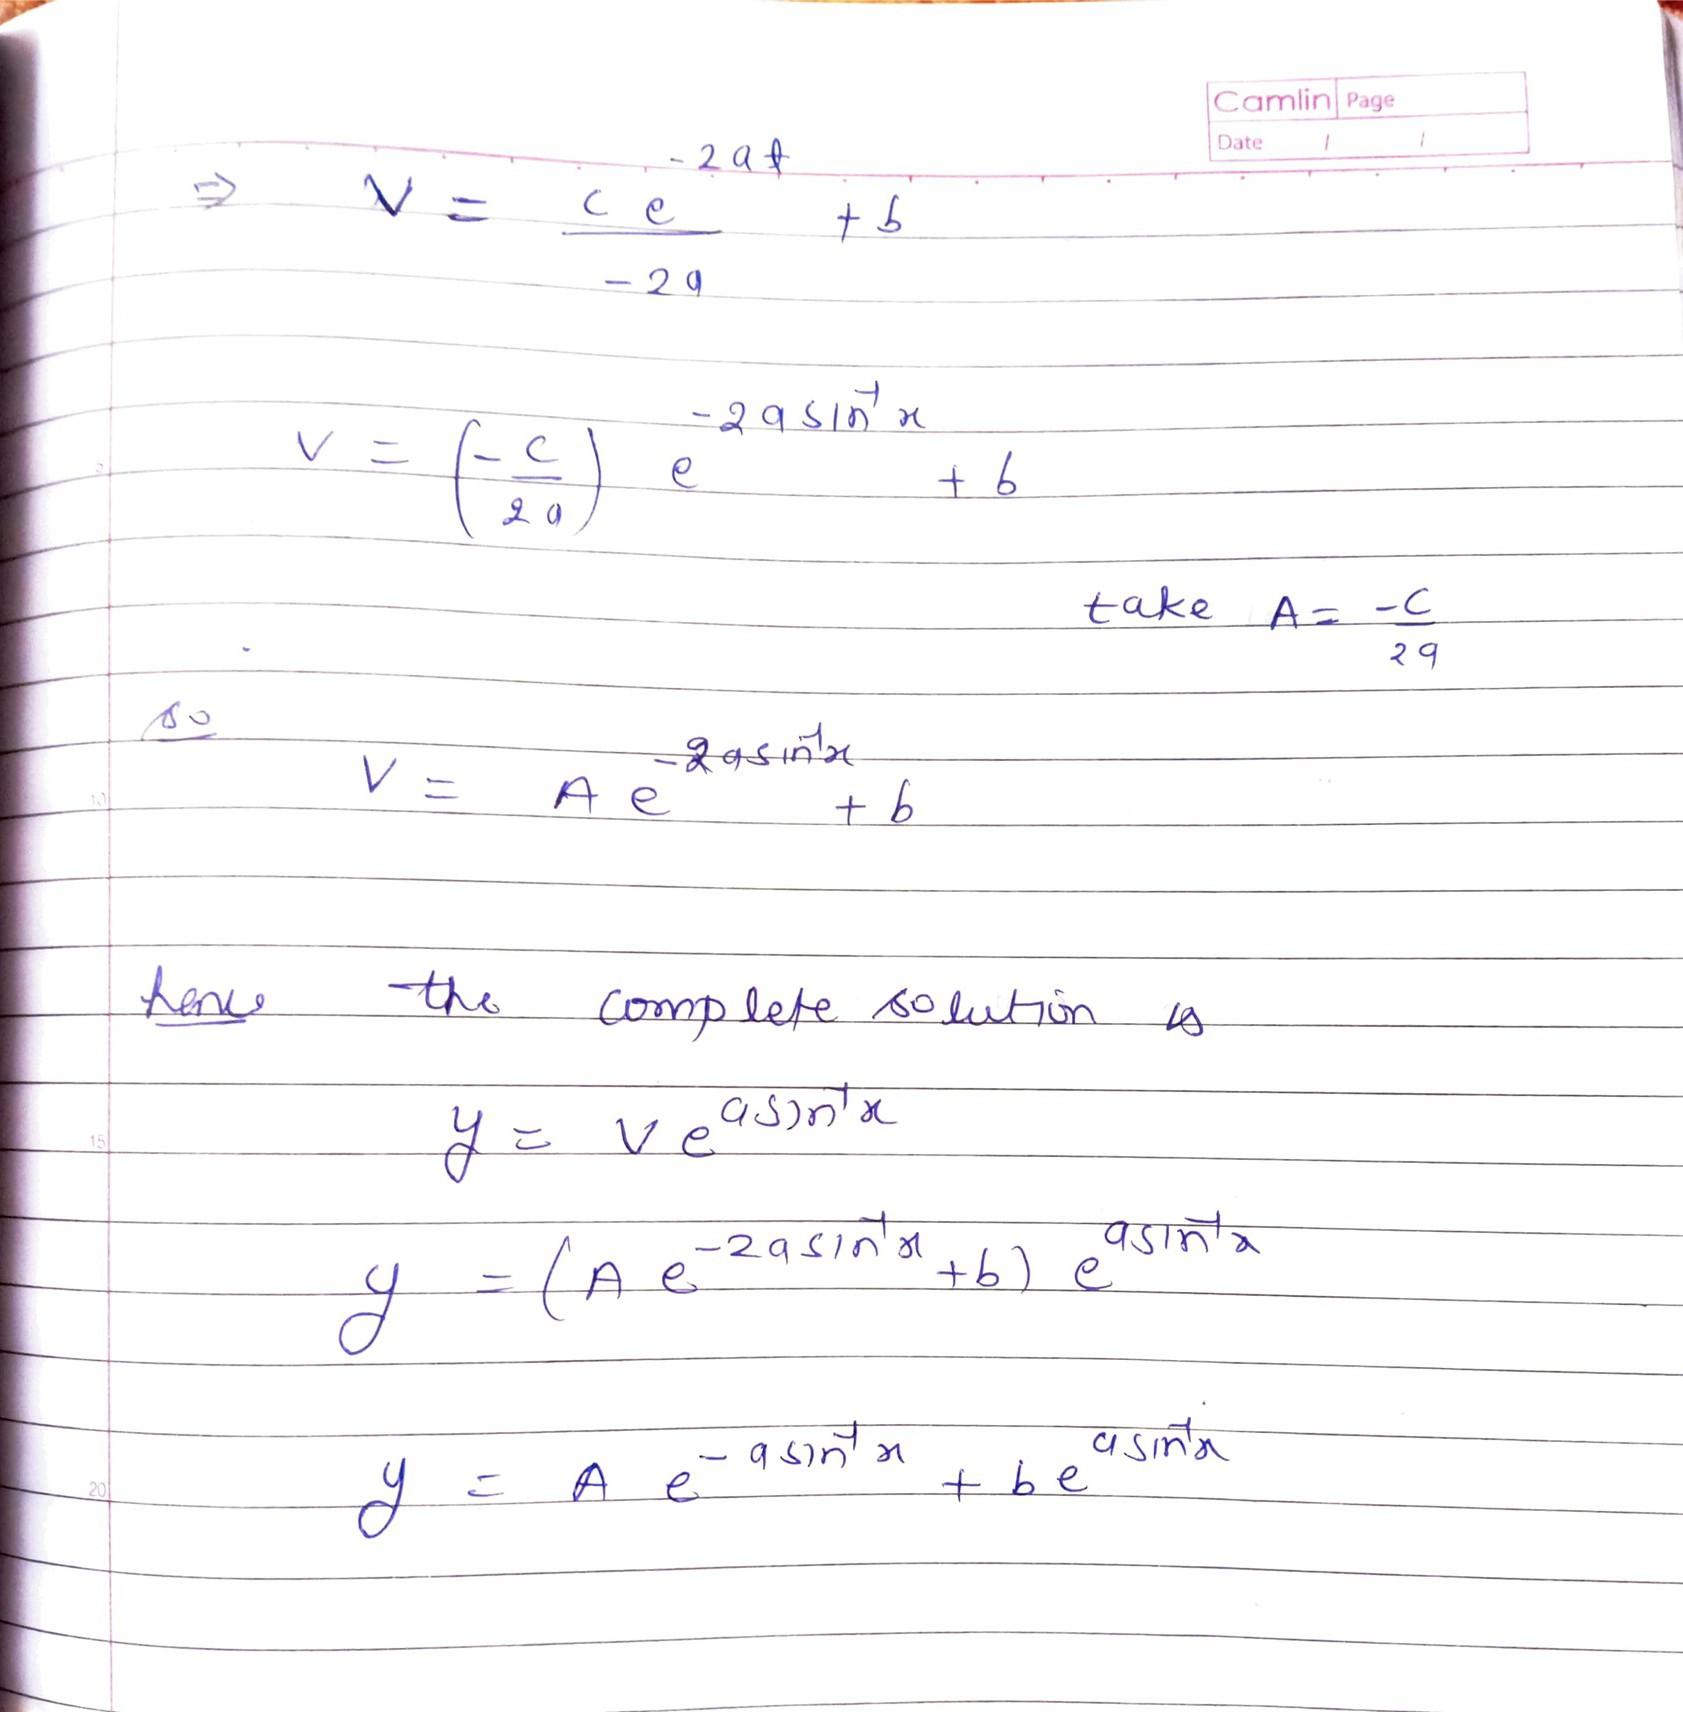 Camlin Page
Date / /
⇒ V = c e^{-2at} / -2a + b
V = (-c/2a) e^{-2a sin⁻¹x} + b
take A = -c/2a
so
V = A e^{-2a sin⁻¹x} + b
hence the complete solution is
15
y = v e^{a sin⁻¹x}
y = (A e^{-2a sin⁻¹x} + b) e^{a sin⁻¹x}
20
y = A e^{-a sin⁻¹x} + b e^{a sin⁻¹x}